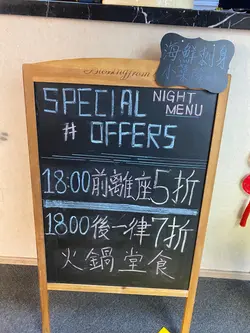 海鮮刺身
SPECIAL
NIGHT
MENU
# OFFERS
18:00前離座5折
18:00後一律7折
火鍋堂食